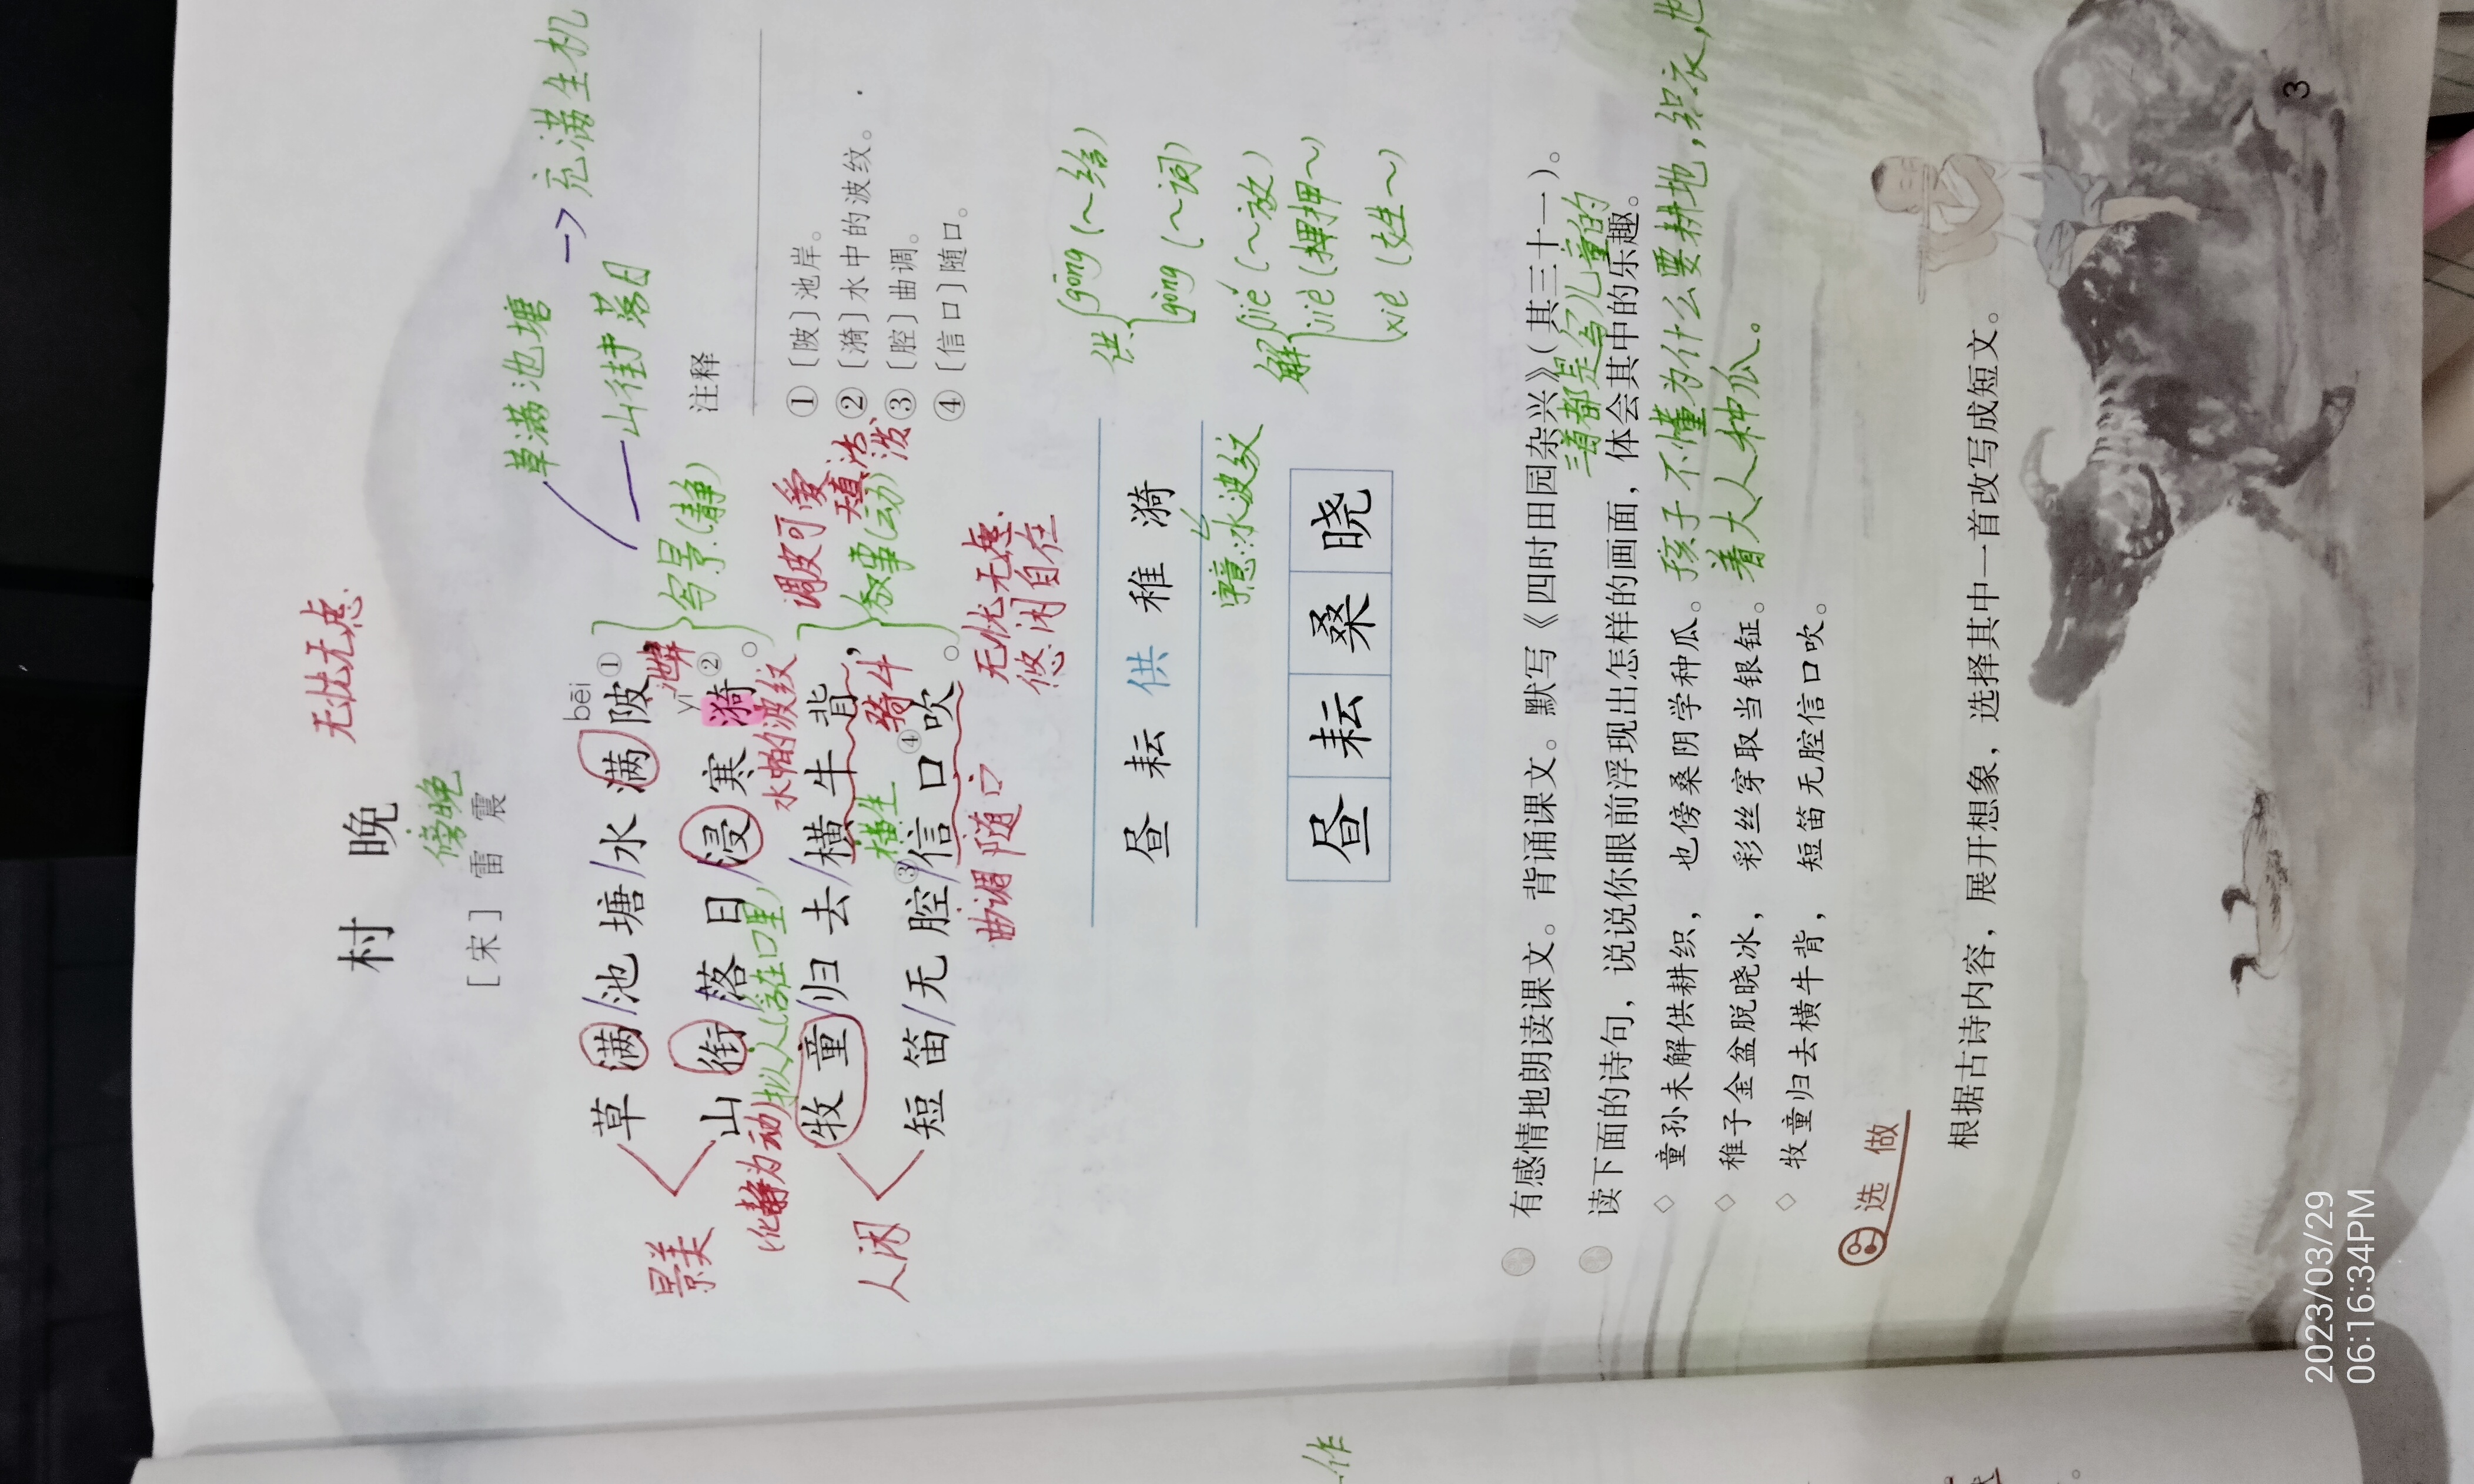 村晚 无忧无虑.
傍晚
[宋] 雷震
草满池塘
山街落日
→充满生机
bēi
草满/池塘/水满陂①，
池岸
景美
写景(静)
yī
山衔/落日/浸寒漪②。
(化静为动)拟人(含在口里)
水中的波纹
牧童/归去/横牛背，
调皮可爱
天真活泼
人闲
横坐 骑牛
叙事(动)
短笛/无腔③/信口④吹。
曲调 随口
无忧无虑.
悠闲自在
注释
①〔陂〕池岸。
②〔漪〕水中的波纹。
③〔腔〕曲调。
④〔信口〕随口。
昼 耘 供 稚 漪
字意:水波纹
供 gōng (~给)
gòng (~词)
解 jiě (~放)
jiè (押~)
xiè (姓~)
昼 耘 桑 晓
作
有感情地朗读课文。背诵课文。默写《四时田园杂兴》(其三十一)。
三首都是写儿童的
读下面的诗句，说说你眼前浮现出怎样的画面，体会其中的乐趣。
◇ 童孙未解供耕织， 也傍桑阴学种瓜。 孩子不懂为什么要耕地,织衣,也
◇ 稚子金盆脱晓冰， 彩丝穿取当银钲。 着大人种瓜。
◇ 牧童归去横牛背， 短笛无腔信口吹。
选做
根据古诗内容，展开想象，选择其中一首改写成短文。
3
2023/03/29
06:16:34PM